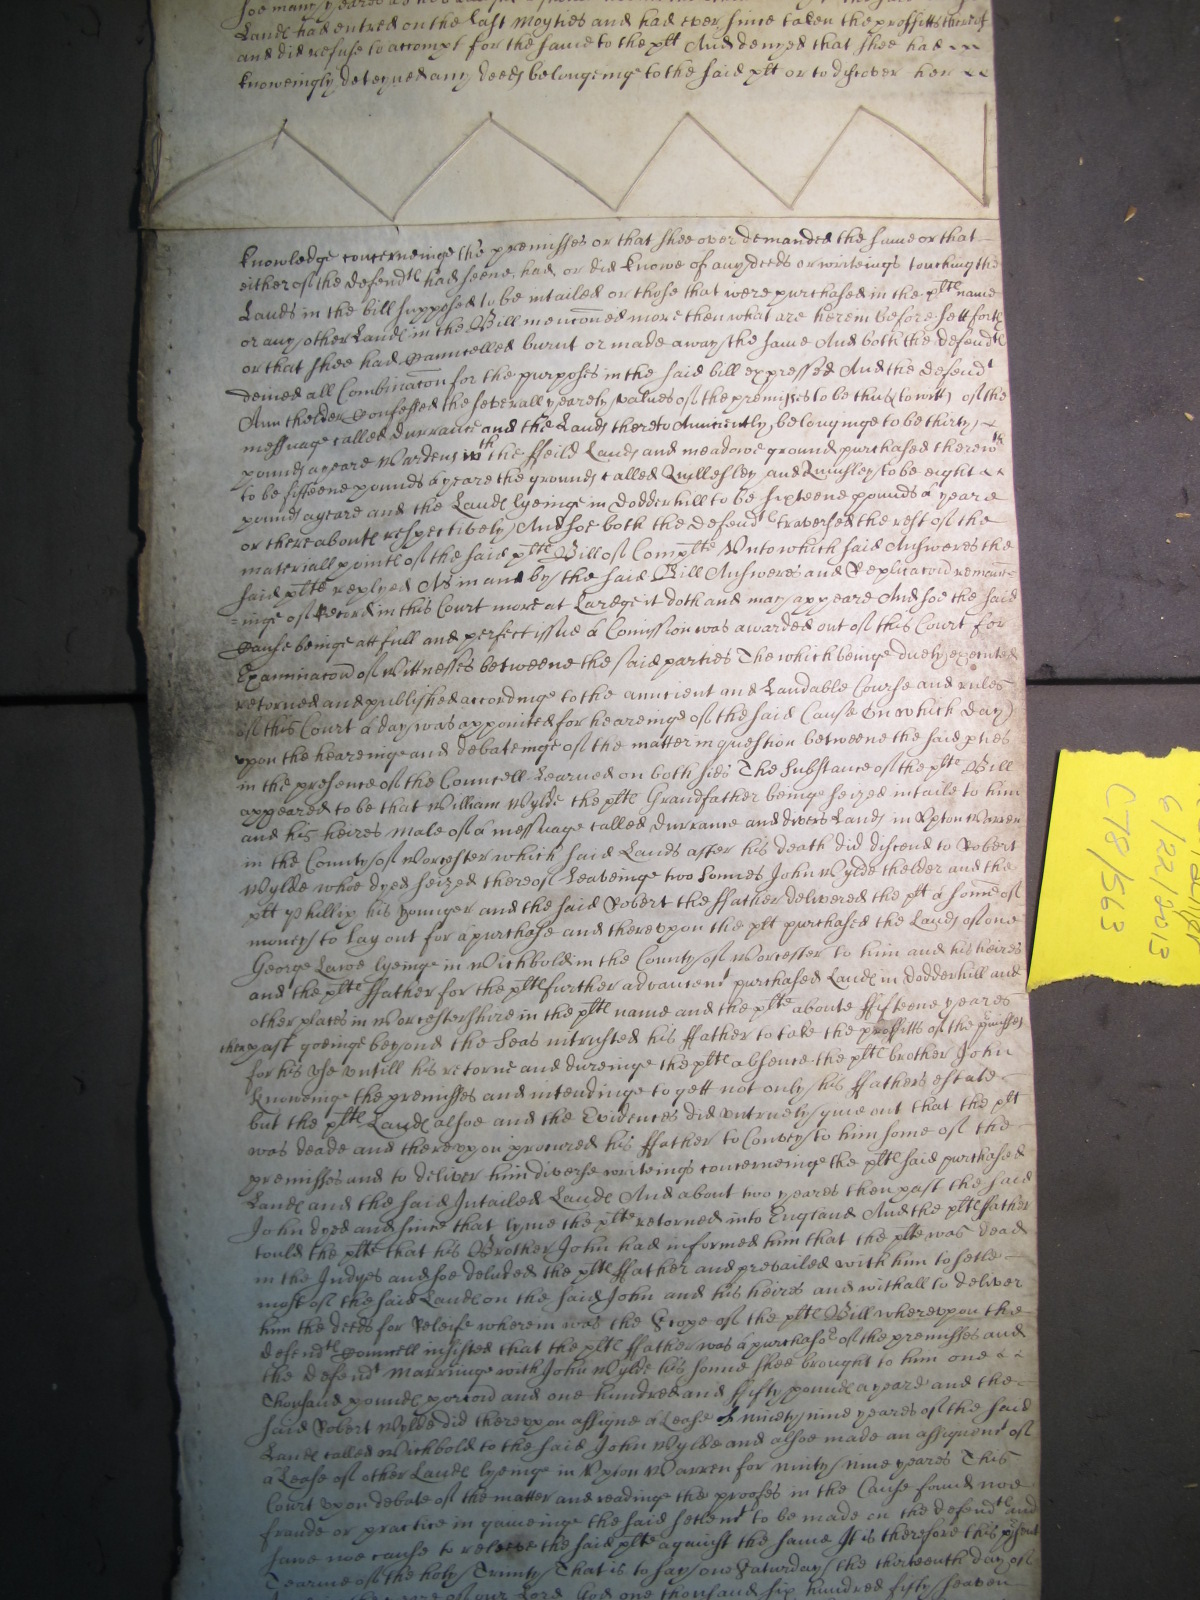 Landℓ had entred on the last moyties and had ever since taken the proffitts thereof
and did refuse to accompt for the same to the plt And denyed that shee had
knoweingly deteyned any deeds belongeinge to the said plt or to discover her
knowledge concerneinge the premisses or that shee ever demanded the same or that
either of the defendtℓ had seene, had, or did knowe of any deeds or writeings touching the
Lands in the bill supposed to be intailed or those that were purchased in the pltℓ name
or any other Landℓ in the Bill menconed more then what are herein before sett forth
or that shee had Canncelled burnt or made away the same And both the defendtℓ
denied all Combinacon for the purposes in the said bill expressed And the defendt
Ann thelder Confessed the severall yearely values of the premisses to be thus (to witt) of the
messuage called Durrance and the Lands thereto Aunciently belonginge to be thirty
pounds a yeare Wardens with the ffeild Lands and meadowe ground purchased therewth
to be fifteene pounds a yeare the grounds called Quillesley and to be eight
pounds a yeare and the Landℓ lyeinge in Dodderhill to be sixteene pounds a yeare
or thereaboutℓ respectively And soe both the defendtℓ traversed the rest of the
materiall pointℓ of the said pltℓ Bill of Complte Unto which said Answeres the
said plte replyed As in and by the said Bill Answeres and Replicacon remain-
=inge of Record in this Court more at Lardge it doth and may appeare And soe the said
Cause beinge att full and perfect issue a Comission was awarded out of this Court for
Examinacon of Wittnesses betweene the said parties The which beinge duely executed
retorned and published accordinge to the auncient and Laudable Course and rules
of this Court a day was appointed for heareinge of the said Cause On which day
upon the heareinge and debateinge of the matter in question betweene the said pties
in the presence of the Councell Learned on both sides The Substance of the pltℓ Bill
appeared to be that William Wylde the pltℓ Grandfather beinge seized intaile to him
and his heires Male of a messuage called Durrance and divers Lands in Upton Warren
in the County of Worcester which said Lands after his death did discend to Robert
Wylde whoe dyed seized thereof Leaveinge two Sonnes John Wylde thelder and the
plt Phillip his younger and the said Robert the ffather delivered the plt a some of
money to Lay out for a purchase and thereupon the plt purchased the Lands of one
George Lawe lyeinge in Wichbold in the County of Worcester to him and his heires
and the pltℓ ffather for the pltℓ further advancemt purchased Landℓ in Dodderhill and
other places in Worcestershire in the pltℓ name and the plte aboute ffifteene yeares
then past goeinge beyond the Seas intrusted his ffather to take the proffitts of the pmisses
for his use untill his retorne and dureinge the pltℓ absence the pltℓ brother John
knoweinge the premisses and intendinge to gett not only his ffathers estate
but the pltℓ Landℓ alsoe and the Evidences did untruely give out that the plt
was deade and thereupon procured his ffather to Convey to him some of the
premisses and to deliver him diverse writeings concerneinge the pltℓ said purchased
Landℓ and the said Intailed Landℓ And about two yeares then past the said
John dyed and since that tyme the plte retorned into England And the pltℓ ffather
tould the plte that his Brother John had informed him that the plte was dead
in the Indyes and soe deluded the pltℓ ffather and prevailed with him to setle
most of the said Landℓ on the said John and his heires and withall to deliver
him the deeds for Releife wherein was the Scope of the pltℓ Bill whereupon the
defendtℓ Councell insisted that the pltℓ ffather was a purchaser of the premisses and
the defendt marriage with John Wylde his sonne shee brought to him one
Thousand poundℓ porcon and one hundred and ffifty poundℓ a yeare and the
said Robert Wylde did thereupon assigne a Lease of ninety nine yeares of the said
Landℓ called Wichbold to the said John Wylde and alsoe made an assignmt of
a Lease of other Landℓ lyeinge in Upton Warren for ninty nine yeares This
Court upon debate of the matter and readinge the proofes in the Cause found noe
fraude or practice in gaineinge the said setlemt to be made on the defendtℓ and
sawe noe cause to releeve the said plte against the same It is therefore this psent
Tearme of the holy Trinity That is to say one Saturday the thirteenth day of
of our Lord God one thousand six hundred fifty seaven
6/22/2013
C78/563